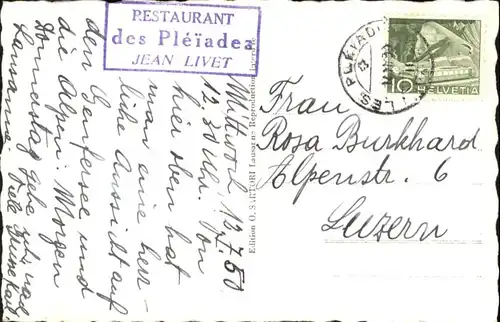 RESTAURANT
des Pléïades
JEAN LIVET
Mittwoch, 12.7.50
12.30 Uhr. Von
hier oben hat
man eine herr-
liche Aussicht auf
den Genfersee und
die Alpen. Morgen
Donnerstag gehe ich nach
Lausanne. Viele Grüsse Karl
Edition O. SARTORI Lausanne Reproduction
LES PLÉIADES
10
HELVETIA
Frau
Rosa Burkhard
Alpenstr. 6
Luzern